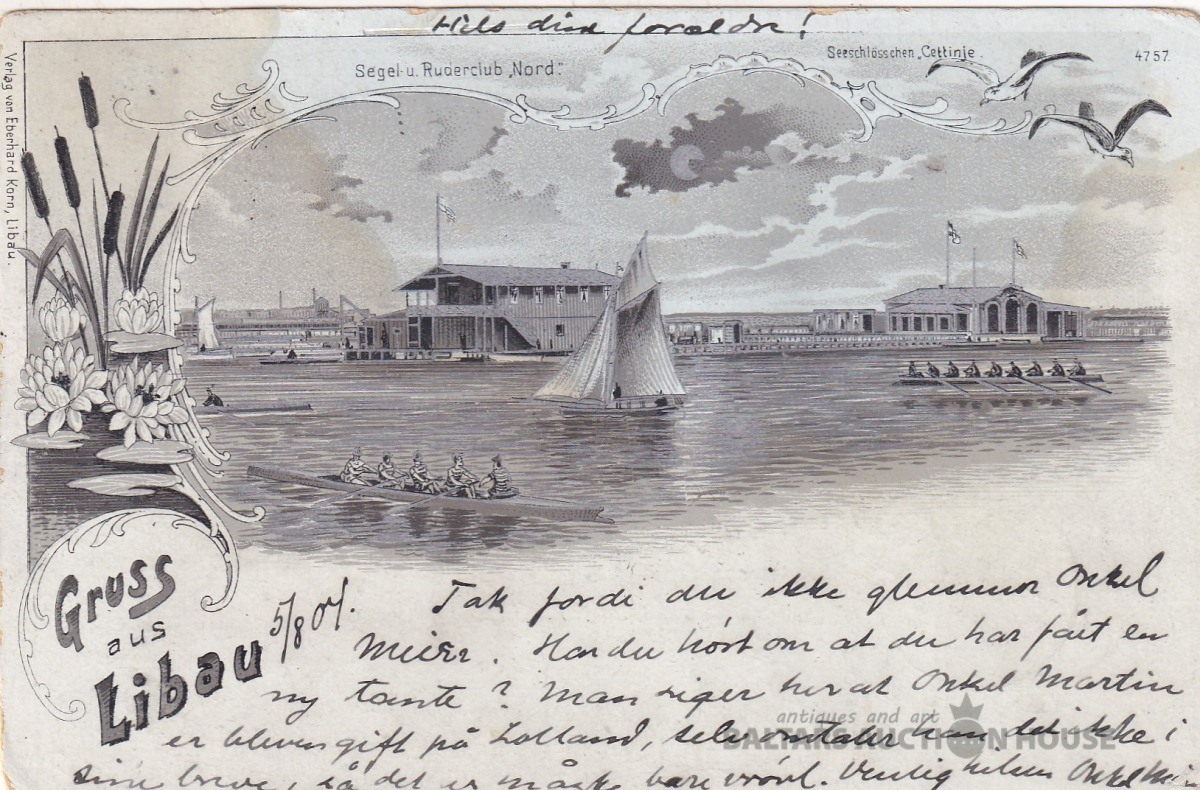 Hils dine forældre!
Segel- u. Ruderclub „Nord."
Seeschlösschen „Cettinje.
4757.
Verlag von Eberhard Korn, Libau.
Gruss
aus
Libau
5/8 04.
Tak fordi du ikke glemmer Onkel
Meier. Har du hört om at du har fåit en
ny tante? Man siger her at Onkel Martin
er bleven gift på Lolland, selv omtaler han det ikke i
sine breve, så det er måske bare vrövl. Venlig hilsen Onkel
antiques and art
BALTARS AUCTION HOUSE